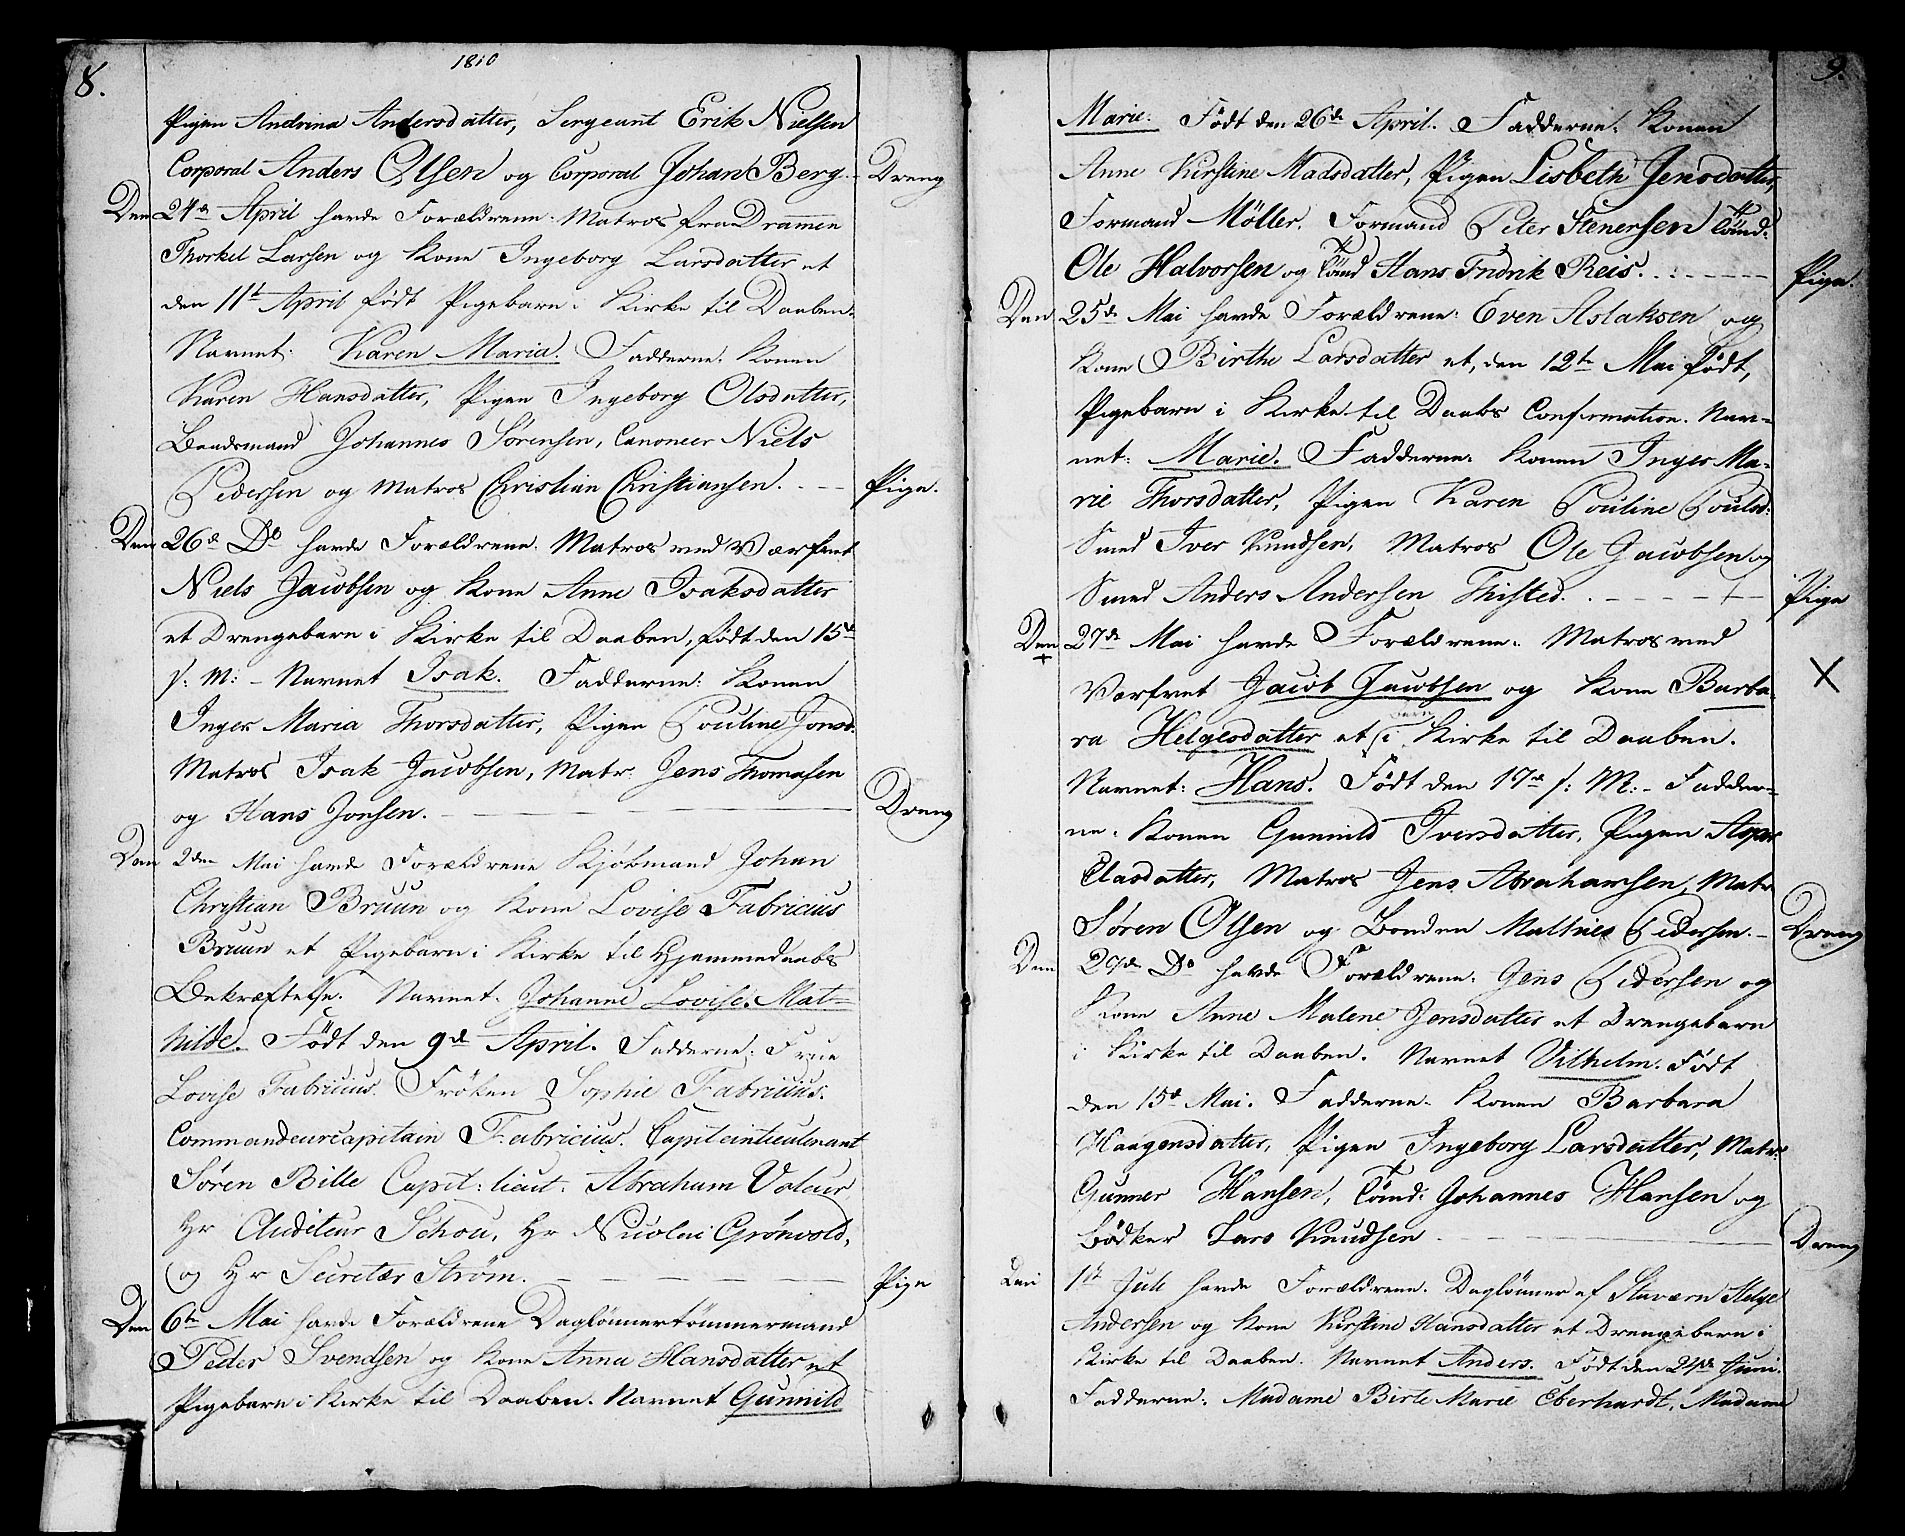 8.
1810
Pigen Andrina Andersdatter, Sergeant Erik Nielsen
Corporal Anders Olsen og Corporal Johan Berg.
Dreng
Den 24de April havde Forældrene: Matros fra Drammen
Thorkel Larsen og Kone Ingeborg Larsdatter et
den 11te April født Pigebarn i Kirke til Daaben.
Navnet: Karen Maria. Fadderne: Konen
Karen Hansdatter, Pigen Ingeborg Olsdatter,
Baadsmand Johannes Sørensen, Canoneer Niels
Pedersen og Matros Christian Christiansen.
Pige.
Den 26de Do havde Forældrene: Matros ved Værfvet
Niels Jacobsen og Kone Anne Isaksdatter
et Drengebarn i Kirke til Daaben, født den 15de
s: M: - Navnet Isak. Fadderne: Konen
Inger Maria Thorsdatter, Pigen Pouline Jonsd.
Matros Isak Jacobsen, Matr. Jens Thomasen
og Hans Jonsen.
Dreng
Den 2den Mai havde Forældrene Kjøbmand Johan
Christian Bruun og Kone Lovise Fabricius
Bruun et Pigebarn i Kirke til Hjemmedaabs
Bekræftelse. Navnet: Johanne Lovise Mat=
hilde. Født den 9de April. Fadderne: Frue
Lovise Fabricius. Frøken Sophie Fabricius.
Commandeurcapitain Fabricius. Capitainlieutenant
Søren Bille Capit: lieut: Abraham Valeur
Hr Auditeur Schou, Hr Nicolai Grønvold,
og Hr Secretær Strøm.
Pige
Den 6te Mai havde Forældrene Daglønnertømmermand
Peder Svendsen og Kone Anna Hansdatter et
Pigebarn i Kirke til Daaben. Navnet Gunnild
9.
Marie: Født den 26de April. Fadderne: Konen
Anne Kirstine Madsdatter, Pigen Lisbeth Jensdatter,
Formand Møller. Formand Peter Stenersen Tømd:
Ole Halvorsen og Tømd Hans Fridrik Reis.
Pige.
Den 25de Mai havde Forældrene: Even Aslaksen og
Kone Birthe Larsdatter et, den 12te Mai født,
Pigebarn i Kirke til Daabs Confirmation. Nav=
net: Marie. Fadderne: Konen Inger Ma=
rie Thorsdatter, Pigen Karen Pouline Poulsd:
Smed Iver Knudsen, Matros Ole Jacobsen og
Smed Anders Andersen Thisted.
Pige
Den 27de Mai havde Forældrene: Matros ved
Værfvet Jacob Jacobsen og Kone Barba=
ra Helgesdatter et i Kirke til Daaben.
Navnet: Hans. Født den 17de s: M: - Fadder=
ne: Konen Gunnild Iversdatter, Pigen
Elasdatter, Matros Jens Abrahamsen, Matr.
Søren Olsen og Bonden Mathies Pedersen.
Dreng
Den 29de Do havde Forældrene: Jens Pedersen og
Kone Anne Malene Jensdatter et Drengebarn
i Kirke til Daaben. Navnet Vilhelm. Født
den 15de Mai. Fadderne: Konen Barbara
Haagensdatter, Pigen Ingeborg Larsdatter, Matr:
Gunner Hansen, Tømd: Johannes Hansen og
Bødker Lars Knudsen
Dreng
Den 1ste Juli havde Forældrene. Daglønner af Staværn Helge
Andersen og Kone Kirstine Hansdatter et Drengebarn i
Kirke til Daaben. Navnet Anders. Født den 24de Juni.
Fadderne: Madame Birte Marie Eberhardt, Madame